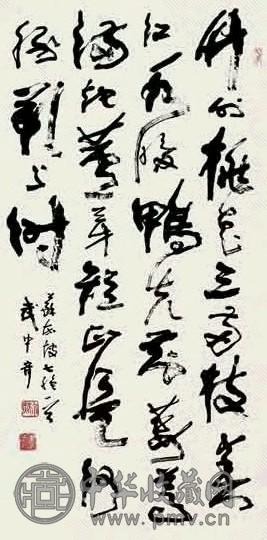 竹外桃花三兩枝春
江水暖鴨先知蔞蒿
滿地蘆芽短正是河
豚欲上時
蘇東坡七絕一首
武中奇
中华收藏网
www.pmv.cn